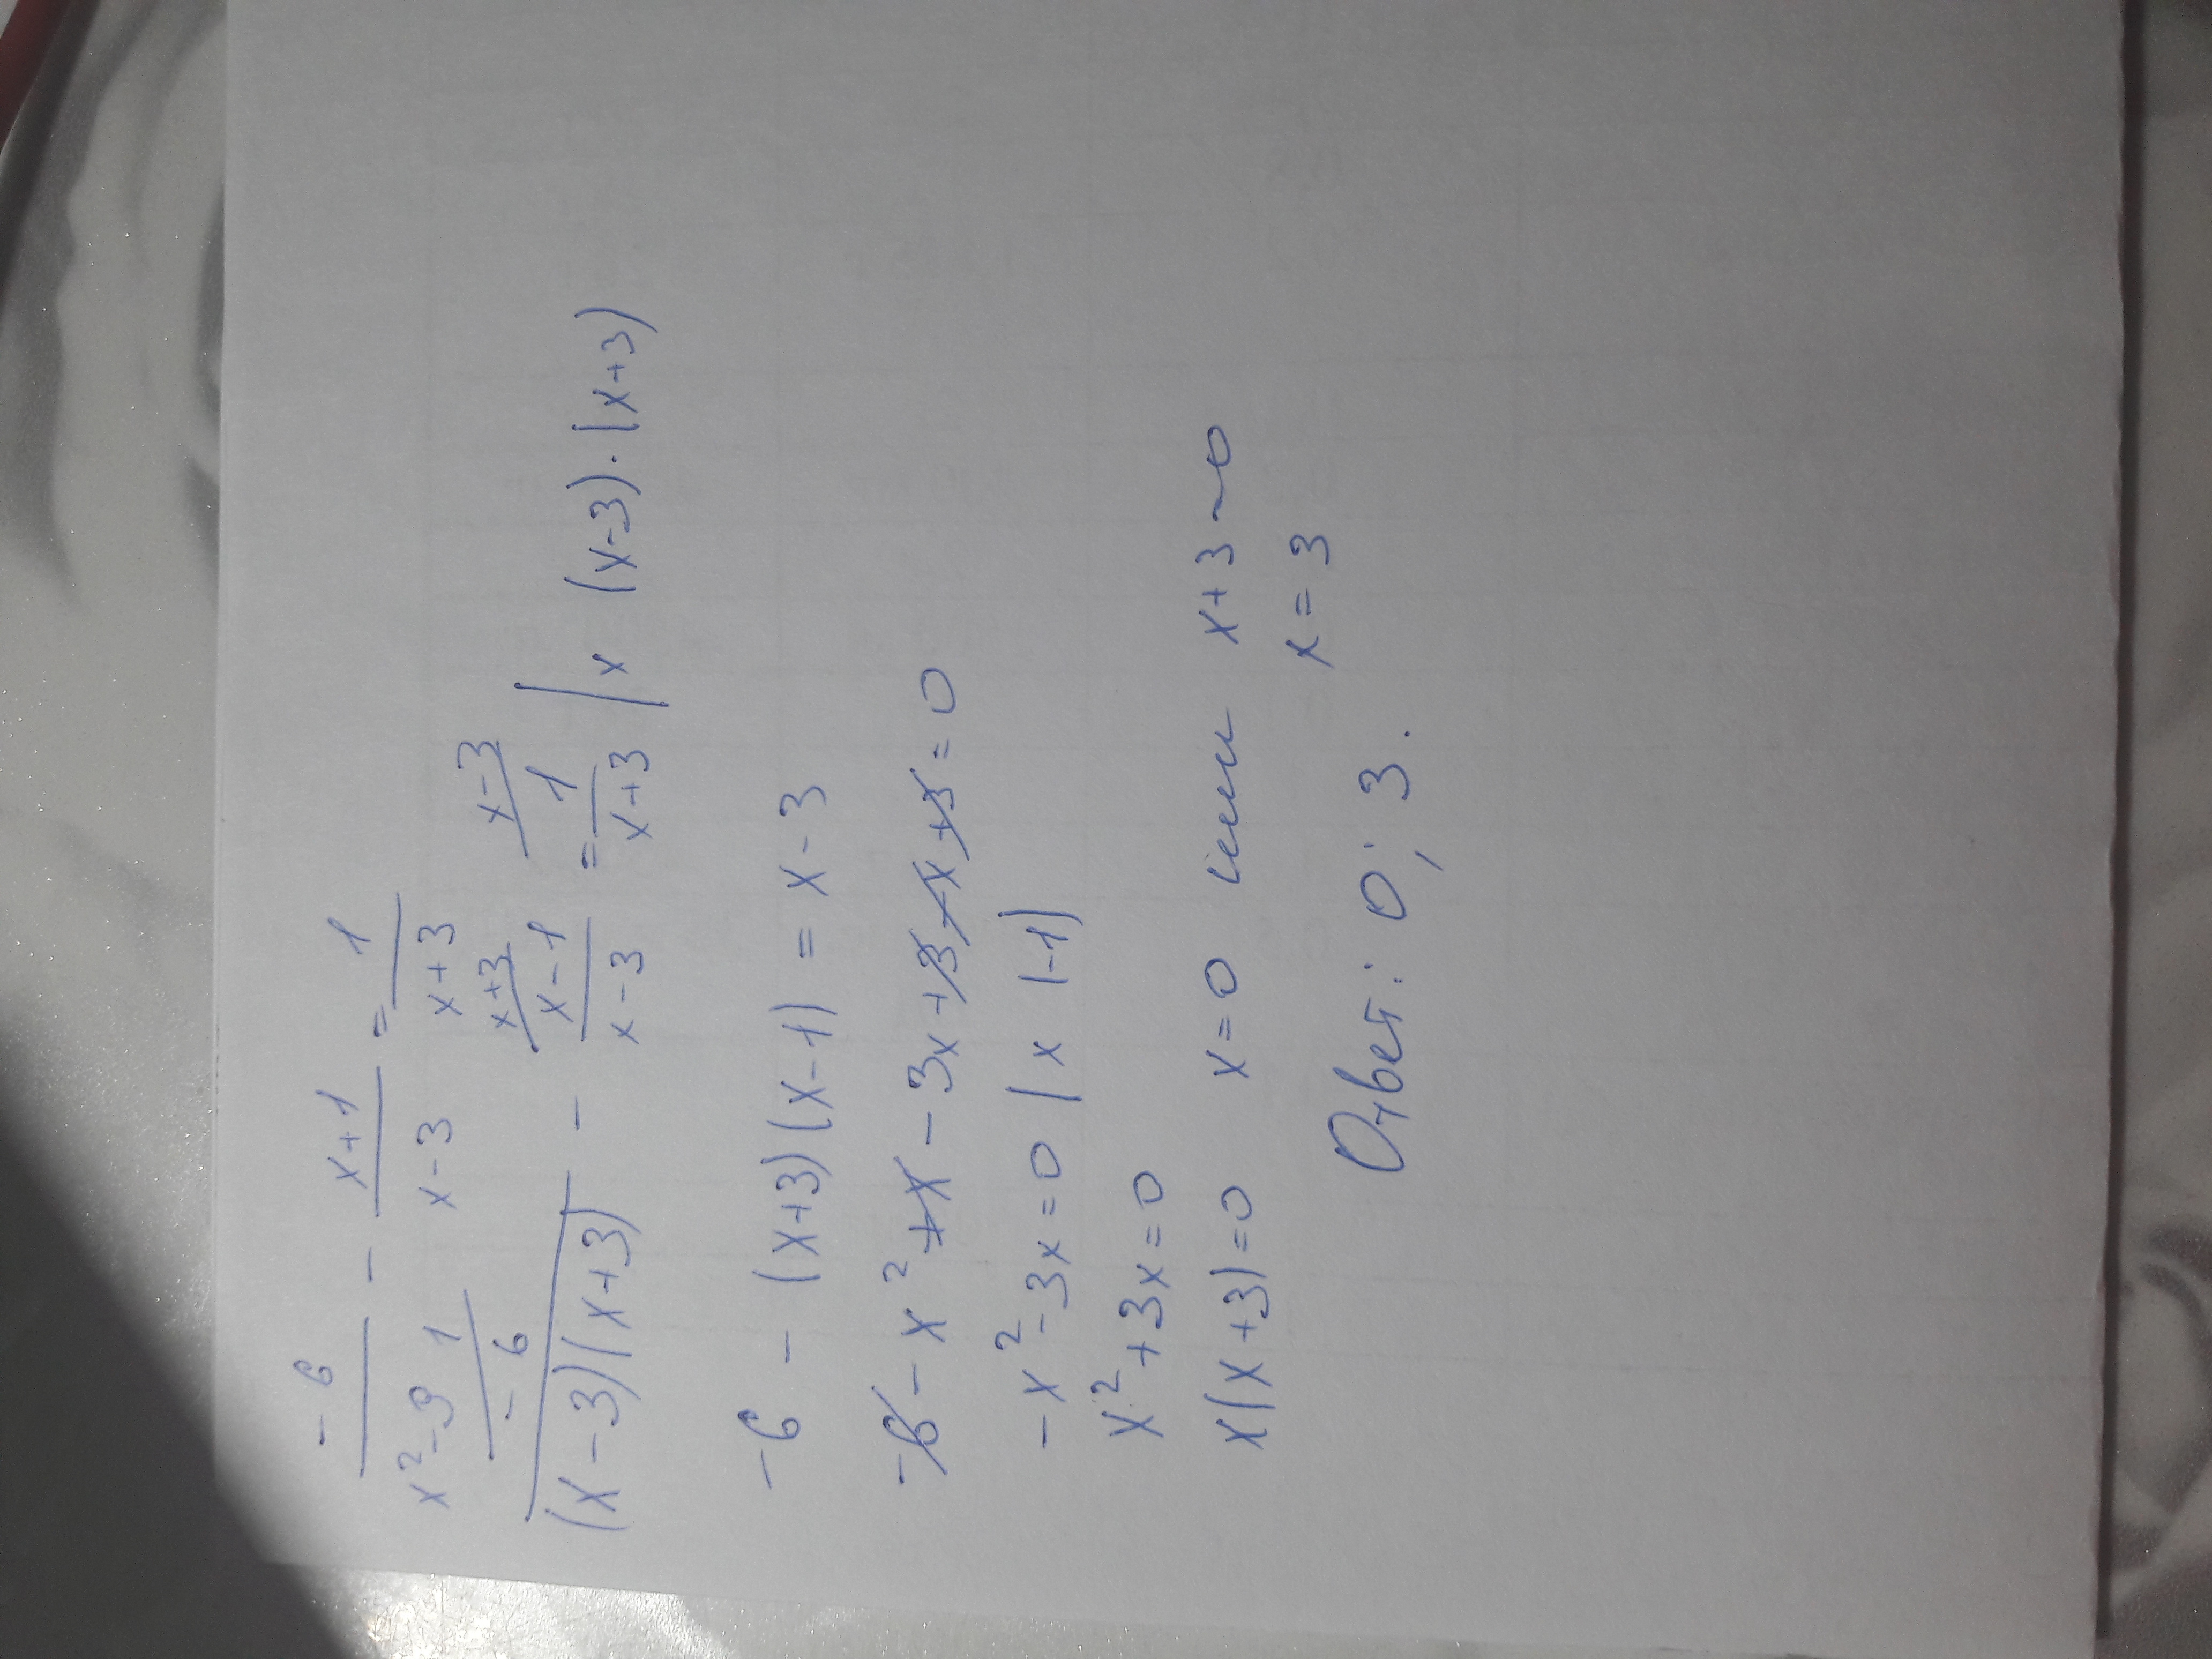 -6/(x²-9) - (x+1)/(x-3) = 1/(x+3)
-6/((x-3)(x+3)) ^1 - (x-1)/(x-3) ^(x+3) = 1/(x+3) ^(x-3) | x (x-3)·(x+3)
-6 - (x+3)(x-1) = x-3
-6 - x² + x - 3x + 3 - x + 3 = 0
-x² - 3x = 0 | x (-1)
x² + 3x = 0
x(x+3)=0 x=0 или x+3=0
x=3
Ответ: 0; 3.